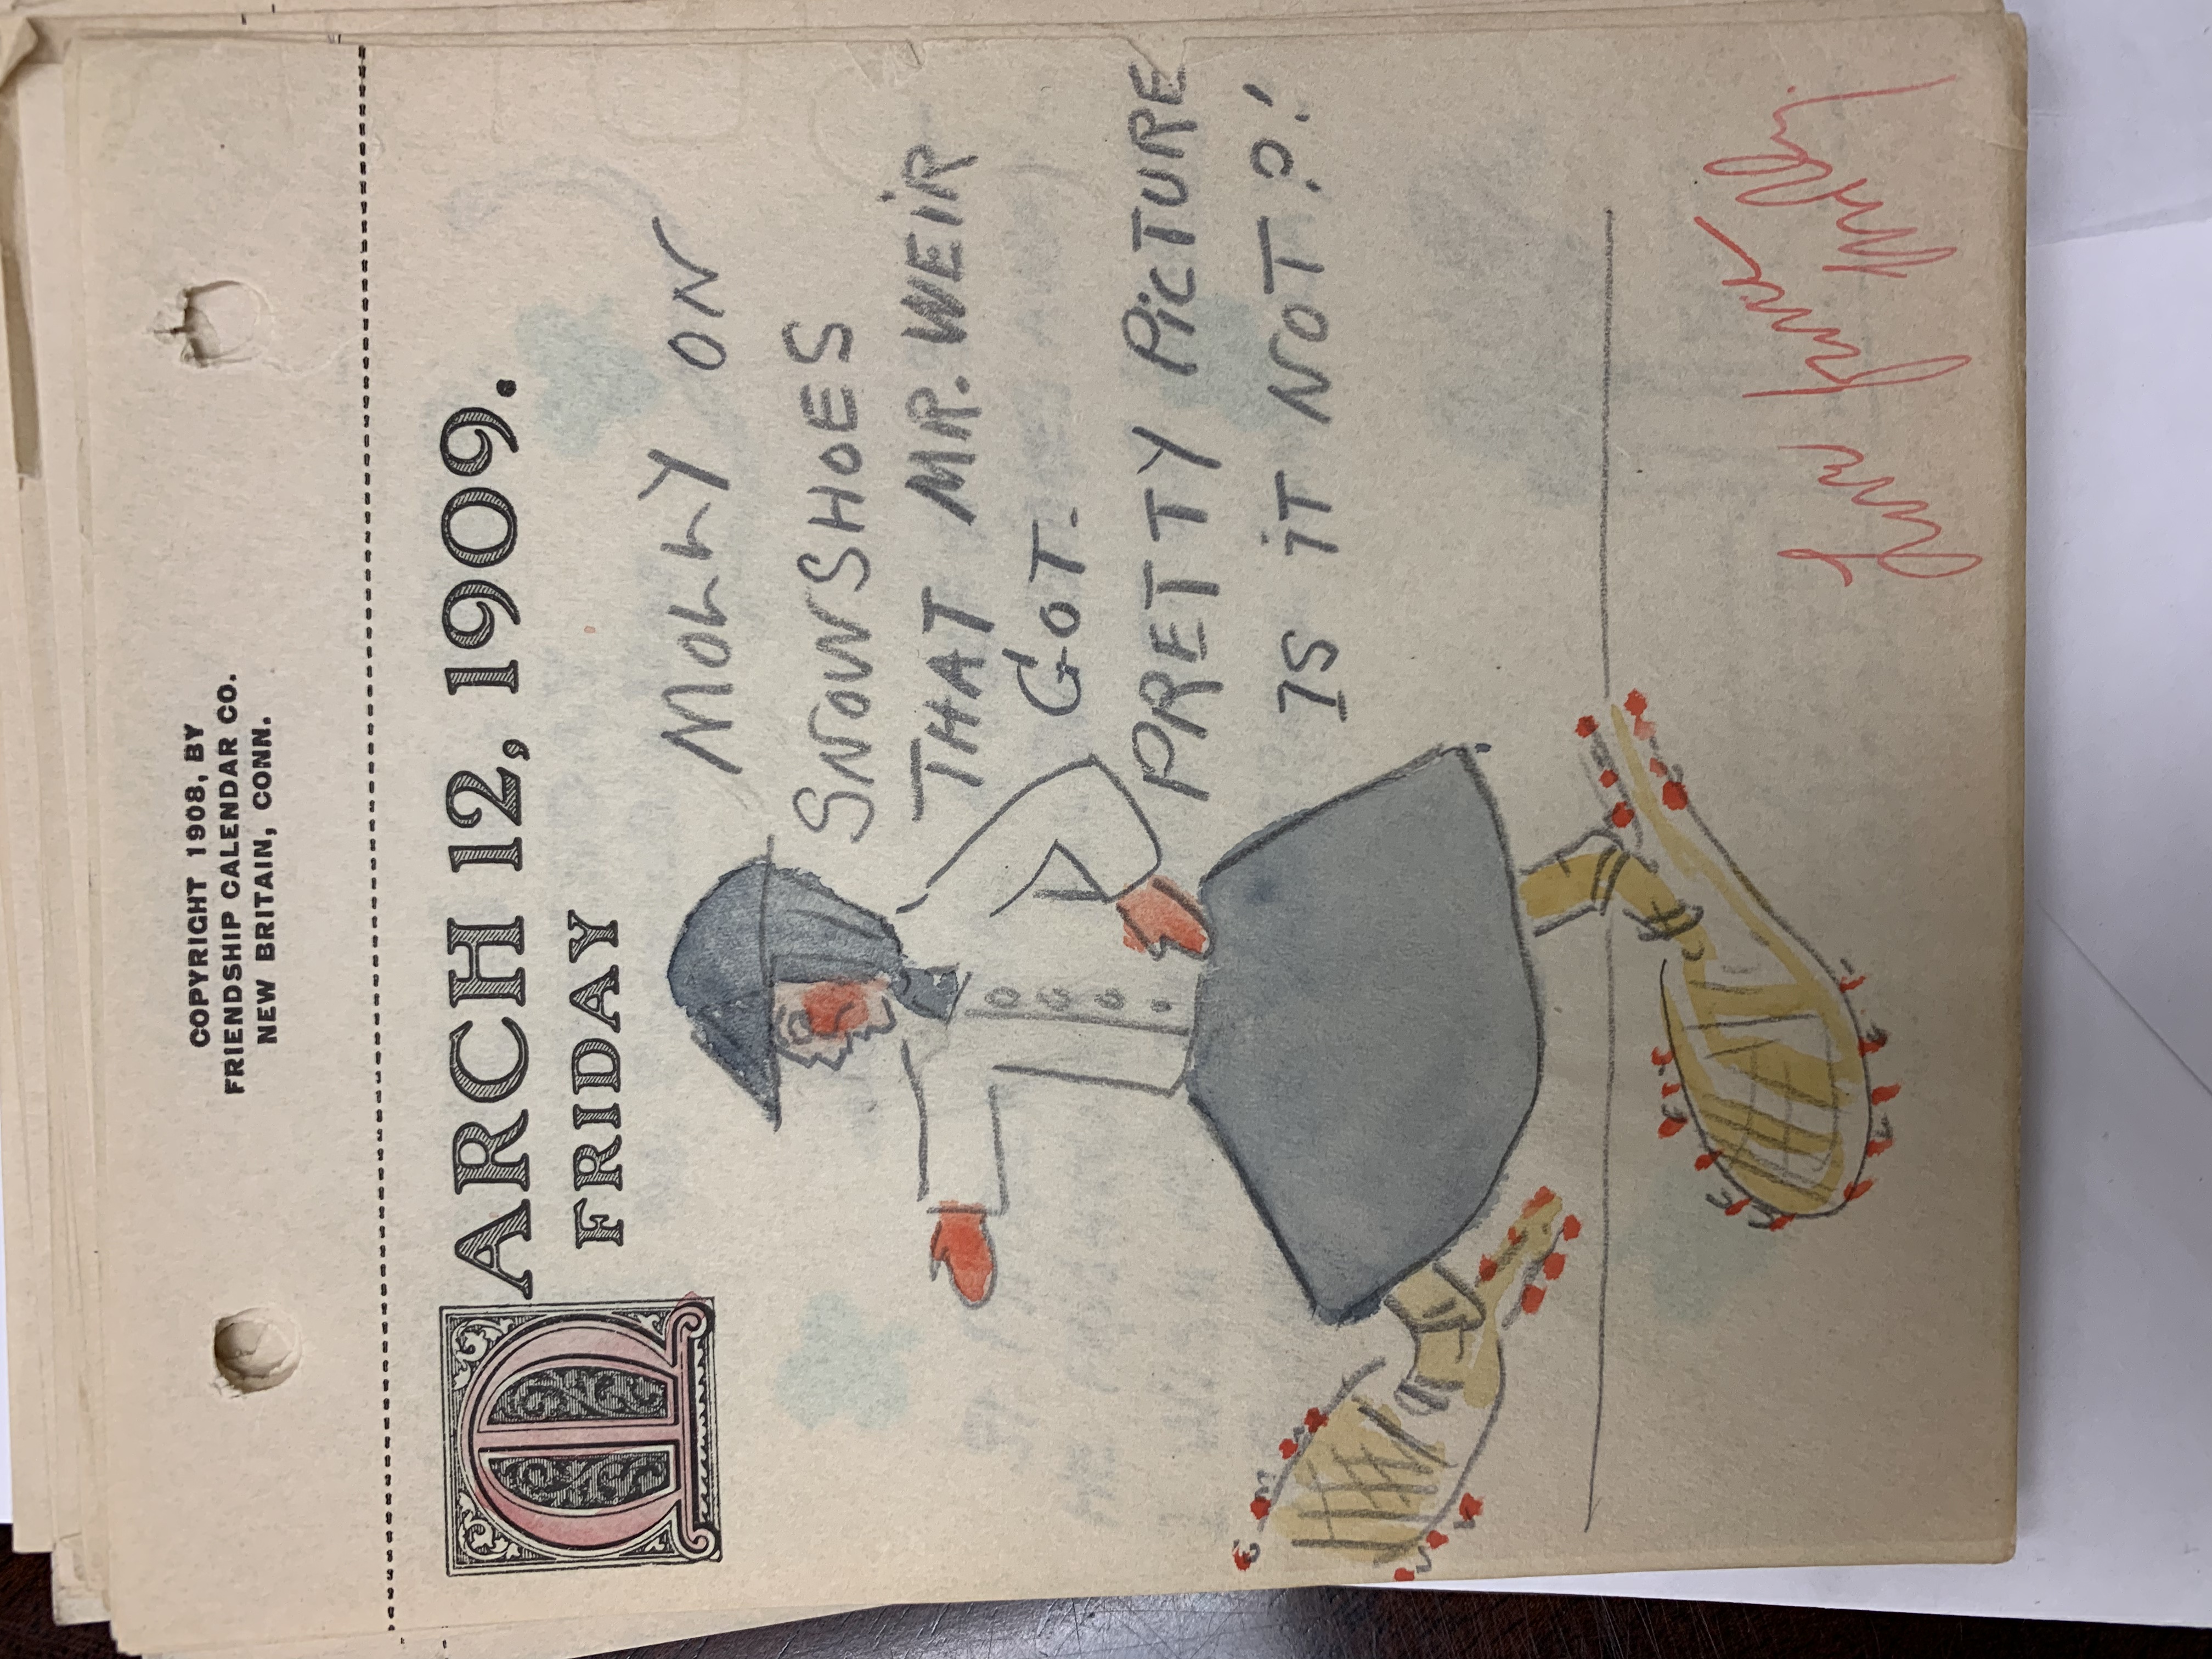 COPYRIGHT 1908, BY
FRIENDSHIP CALENDAR CO.
NEW BRITAIN, CONN.
MARCH 12, 1909.
FRIDAY
MOLLY ON
SNOWSHOES
THAT MR. WEIR
GOT.
PRETTY PICTURE
IS IT NOT?!
Love from
Molly.